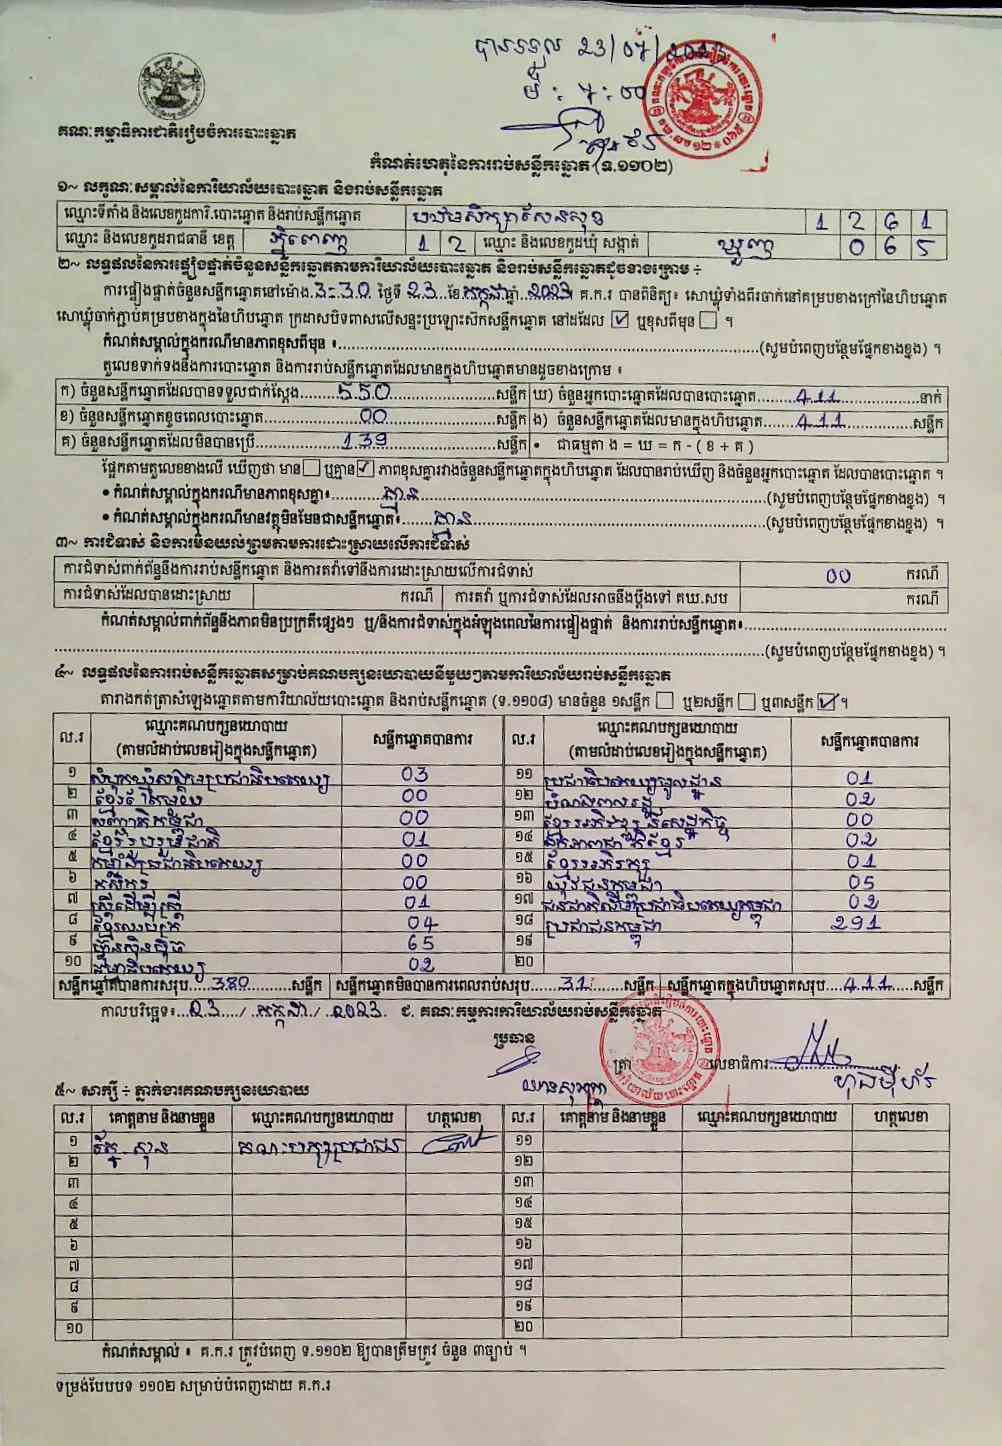 បានទទួល 23/07/2023
ម៉ : 4 : 00
គណៈកម្មាធិការជាតិរៀបចំការបោះឆ្នោត
កំណត់ហេតុនៃការរាប់សន្លឹកឆ្នោត (ទ.១១០២)
១~ លក្ខណៈសម្គាល់នៃការិយាល័យបោះឆ្នោត និងរាប់សន្លឹកឆ្នោត
ឈ្មោះទីតាំង និងលេខកូដការិ.បោះឆ្នោត និងរាប់សន្លឹកឆ្នោត បឋមសិក្សាសែនសុខ 1 2 6 1
ឈ្មោះ និងលេខកូដរាជធានី ខេត្ត ភ្នំពេញ 1 2 ឈ្មោះ និងលេខកូដឃុំ សង្កាត់ ឃ្មួញ 0 6 5
២~ លទ្ធផលនៃការផ្ទៀងផ្ទាត់ចំនួនសន្លឹកឆ្នោតតាមការិយាល័យបោះឆ្នោត និងរាប់សន្លឹកឆ្នោតដូចខាងក្រោម ÷
ការផ្ទៀងផ្ទាត់ចំនួនសន្លឹកឆ្នោតនៅម៉ោង 3-30 ថ្ងៃទី 23 ខែ កក្កដា ឆ្នាំ 2023 គ.ក.រ បានពិនិត្យ៖ សោឃ្លុំទាំងពីរចាក់នៅគម្របខាងក្រៅនៃហិបឆ្នោត
សោឃ្លុំចាក់ភ្ជាប់គម្របខាងក្នុងនៃហិបឆ្នោត ក្រដាសបិទពាសលើសន្ទះប្រឡោះស៊កសន្លឹកឆ្នោត នៅដដែល ☑ ឬខុសពីមុន ☐ ។
កំណត់សម្គាល់ក្នុងករណីមានភាពខុសពីមុន ៖ (សូមបំពេញបន្ថែមផ្នែកខាងខ្នង) ។
តួលេខទាក់ទងនឹងការបោះឆ្នោត និងការរាប់សន្លឹកឆ្នោតដែលមានក្នុងហិបឆ្នោតមានដូចខាងក្រោម ៖
ក) ចំនួនសន្លឹកឆ្នោតដែលបានទទួលជាក់ស្តែង 550 សន្លឹក ឃ) ចំនួនអ្នកបោះឆ្នោតដែលបានបោះឆ្នោត 411 នាក់
ខ) ចំនួនសន្លឹកឆ្នោតខូចពេលបោះឆ្នោត 00 សន្លឹក ង) ចំនួនសន្លឹកឆ្នោតដែលមានក្នុងហិបឆ្នោត 411 សន្លឹក
គ) ចំនួនសន្លឹកឆ្នោតដែលមិនបានប្រើ 139 សន្លឹក • ជាធម្មតា ង = ឃ = ក - ( ខ + គ )
ផ្អែកតាមតួលេខខាងលើ ឃើញថា មាន ☐ ឬគ្មាន ☑ ភាពខុសគ្នារវាងចំនួនសន្លឹកឆ្នោតក្នុងហិបឆ្នោត ដែលបានរាប់ឃើញ និងចំនួនអ្នកបោះឆ្នោត ដែលបានបោះឆ្នោត ។
• កំណត់សម្គាល់ក្នុងករណីមានភាពខុសគ្នា៖ គ្មាន (សូមបំពេញបន្ថែមផ្នែកខាងខ្នង) ។
• កំណត់សម្គាល់ក្នុងករណីមានវត្ថុមិនមែនជាសន្លឹកឆ្នោត៖ គ្មាន (សូមបំពេញបន្ថែមផ្នែកខាងខ្នង) ។
៣~ ការជំទាស់ និងការមិនយល់ព្រមតាមការដោះស្រាយលើការជំទាស់
ការជំទាស់ពាក់ព័ន្ធនឹងការរាប់សន្លឹកឆ្នោត និងការតវ៉ាទៅនឹងការដោះស្រាយលើការជំទាស់ 00 ករណី
ការជំទាស់ដែលបានដោះស្រាយ ករណី ការតវ៉ា ឬការជំទាស់ដែលអាចនឹងប្តឹងទៅ គឃ.សប ករណី
កំណត់សម្គាល់ពាក់ព័ន្ធនឹងភាពមិនប្រក្រតីផ្សេងៗ ឬ/និងការជំទាស់ក្នុងអំឡុងពេលនៃការផ្ទៀងផ្ទាត់ និងការរាប់សន្លឹកឆ្នោត៖
(សូមបំពេញបន្ថែមផ្នែកខាងខ្នង) ។
៤~ លទ្ធផលនៃការរាប់សន្លឹកឆ្នោតសម្រាប់គណបក្សនយោបាយនីមួយៗតាមការិយាល័យរាប់សន្លឹកឆ្នោត
តារាងកត់ត្រាសំឡេងឆ្នោតតាមការិយាល័យបោះឆ្នោត និងរាប់សន្លឹកឆ្នោត (ទ.១១០៨) មានចំនួន ១សន្លឹក ☐ ឬ២សន្លឹក ☐ ឬ៣សន្លឹក ☑ ។
ល.រ ឈ្មោះគណបក្សនយោបាយ (តាមលំដាប់លេខរៀងក្នុងសន្លឹកឆ្នោត) សន្លឹកឆ្នោតបានការ ល.រ ឈ្មោះគណបក្សនយោបាយ (តាមលំដាប់លេខរៀងក្នុងសន្លឹកឆ្នោត) សន្លឹកឆ្នោតបានការ
១ សំបុកឃ្មុំសង្គមប្រជាធិបតេយ្យ 03 ១១ ប្រជាធិបតេយ្យមូលដ្ឋាន 01
២ ខ្មែរ 00 ១២ 02
៣ 00 ១៣ ខ្មែរអភិវឌ្ឍន៍សេដ្ឋកិច្ច 00
៤ ខ្មែររួបរួមជាតិ 01 ១៤ ឯកភាពជាតិខ្មែរ 02
៥ កម្លាំងប្រជាធិបតេយ្យ 00 ១៥ ខ្មែរអភិរក្ស 01
៦ កសិករ 00 ១៦ យុវជនកម្ពុជា 05
៧ ស្ត្រីដើម្បីស្ត្រី 01 ១៧ ជនជាតិដើមប្រជាធិបតេយ្យកម្ពុជា 02
៨ ខ្មែរឈប់ក្រ 04 ១៨ ប្រជាជនកម្ពុជា 291
៩ ហ៊្វុនស៊ិនប៉ិច 65 ១៩
១០ ធម្មាធិបតេយ្យ 02 ២០
សន្លឹកឆ្នោតបានការសរុប 380 សន្លឹក សន្លឹកឆ្នោតមិនបានការពេលរាប់សរុប 31 សន្លឹក សន្លឹកឆ្នោតក្នុងហិបឆ្នោតសរុប 411 សន្លឹក
កាលបរិច្ឆេទ៖ 23 / កក្កដា / 2023 ជ. គណៈកម្មការការិយាល័យរាប់សន្លឹកឆ្នោត
ប្រធាន
ត្រា លេខាធិការ
៥~ សាក្សី ÷ ភ្នាក់ងារគណបក្សនយោបាយ
ល.រ គោត្តនាម និងនាមខ្លួន ឈ្មោះគណបក្សនយោបាយ ហត្ថលេខា ល.រ គោត្តនាម និងនាមខ្លួន ឈ្មោះគណបក្សនយោបាយ ហត្ថលេខា
១ គណៈបក្សប្រជាជន ១១
២ ១២
៣ ១៣
៤ ១៤
៥ ១៥
៦ ១៦
៧ ១៧
៨ ១៨
៩ ១៩
១០ ២០
កំណត់សម្គាល់ ៖ គ.ក.រ ត្រូវបំពេញ ទ.១១០២ ឱ្យបានត្រឹមត្រូវ ចំនួន ៣ច្បាប់ ។
ទម្រង់បែបបទ ១១០២ សម្រាប់បំពេញដោយ គ.ក.រ